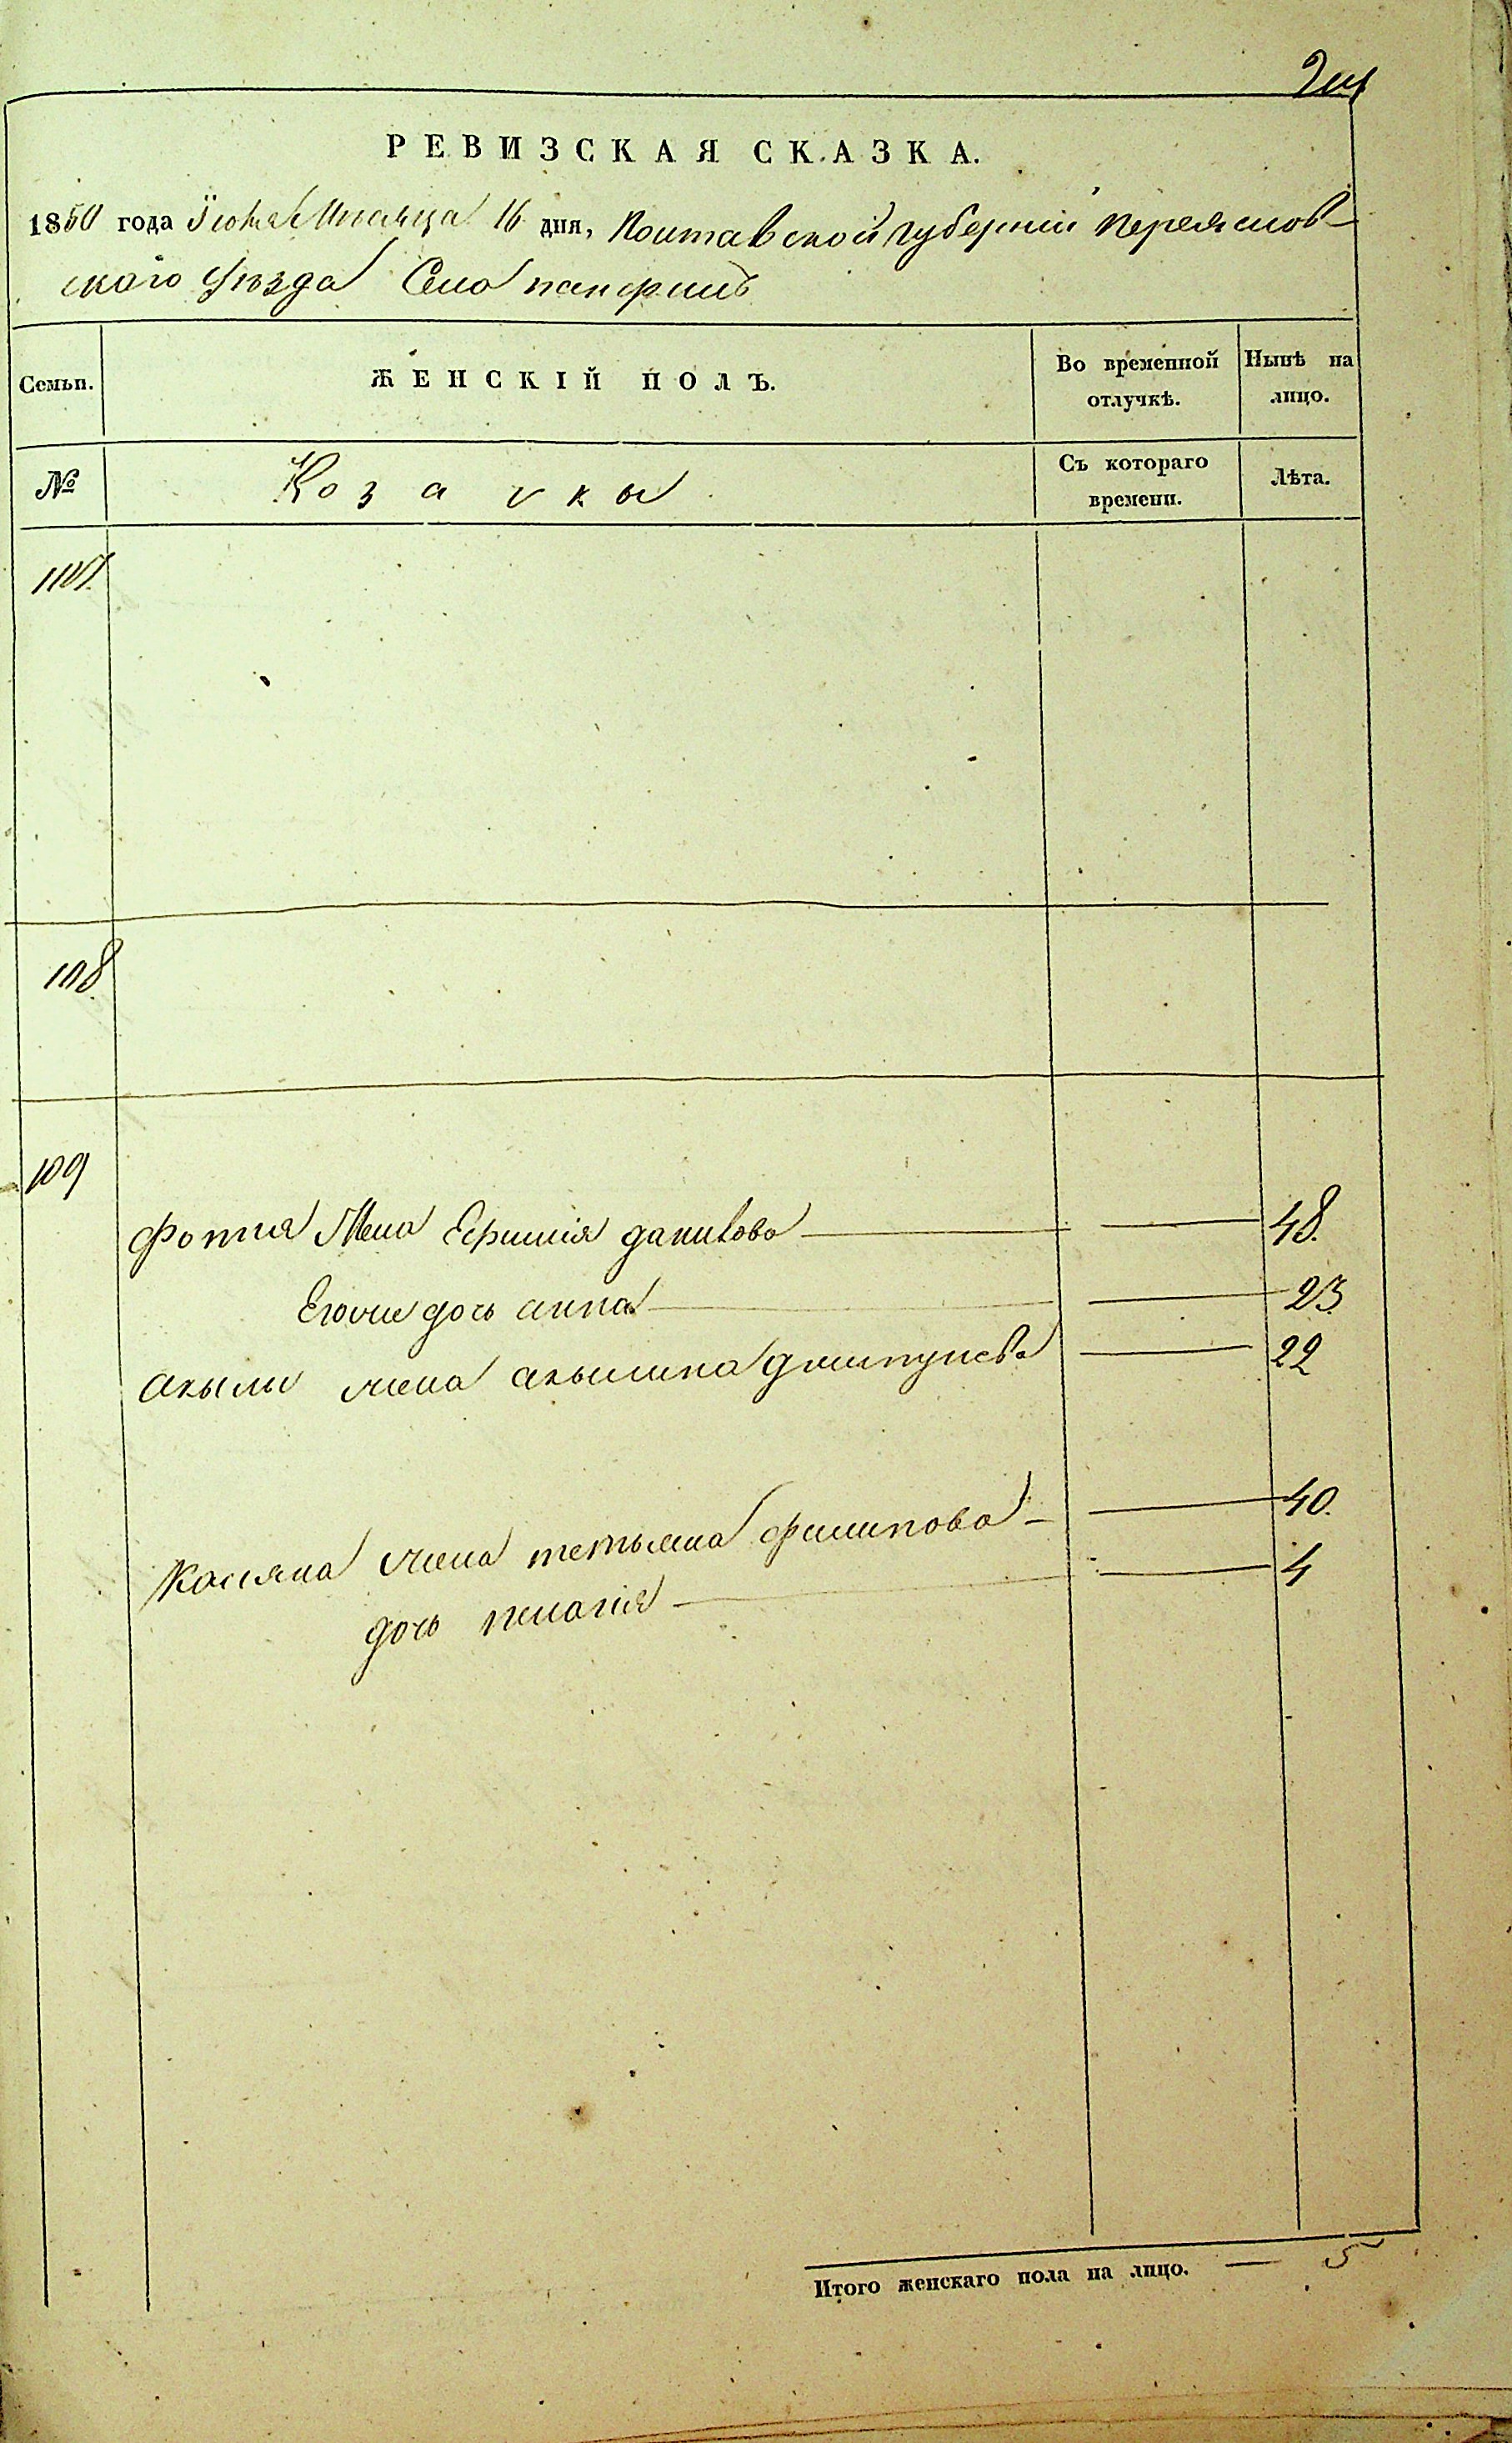 РЕВИЗСКАЯ СКАЗКА.
1850 года Июня Месяца 16 дня, Полтавской Губернии Переяслов-
скаго Уѣзда Село
Семьи.
ЖЕНСКІЙ ПОЛЪ.
Во временной отлучкѣ.
Нынѣ на лицо.
№
Козачки
Съ котораго времени.
Лѣта.
107.
108.
109
Фотия Жена Ефимія данилова 48.
Егоже дочь анна 23
жена акылина 22
Касяна жена тетьяна филипова 40.
дочь пелагія 4
Итого женскаго пола на лицо. — 5